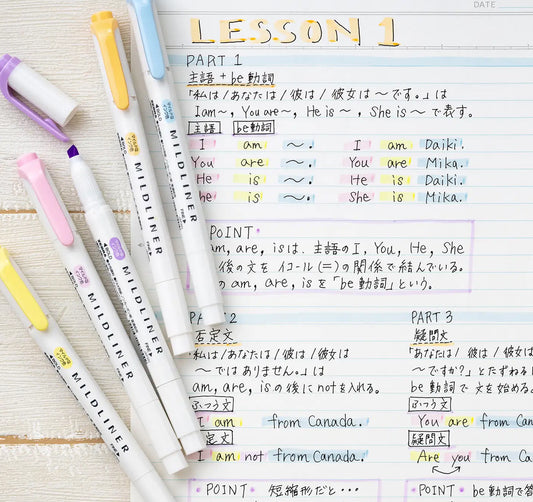 DATE
LESSON 1
PART 1
主語 + be動詞
「私は / あなたは / 彼は / 彼女は 〜です。」は
I am〜, You are〜, He is 〜, She is 〜 で表す。
主語 be動詞
I am 〜. I am Daiki.
You are 〜. You are Mika.
He is 〜. He is Daiki.
he is 〜. She is Mika.
POINT
am, are, is は、主語の I, You, He, She
後の文を イコール (=) の関係で結んでいる。
の am, are, is を「be動詞」という。
2
否定文
「私は / あなたは / 彼は / 彼女は
〜ではありません。」は
am, are, is の後に not を入れる。
ふつう文
I am from Canada.
定文
I am not from Canada.
POINT 短縮形だと・・・
PART 3
疑問文
「あなたは / 彼は / 彼女は
〜ですか?」とたずねる
be動詞で文を始める
ふつう文
You are from Can
疑問文
Are you from Can
POINT be動詞で答
MILDLINER
MILDLINER
MILDLINER
MILDLINER
MILDLINER